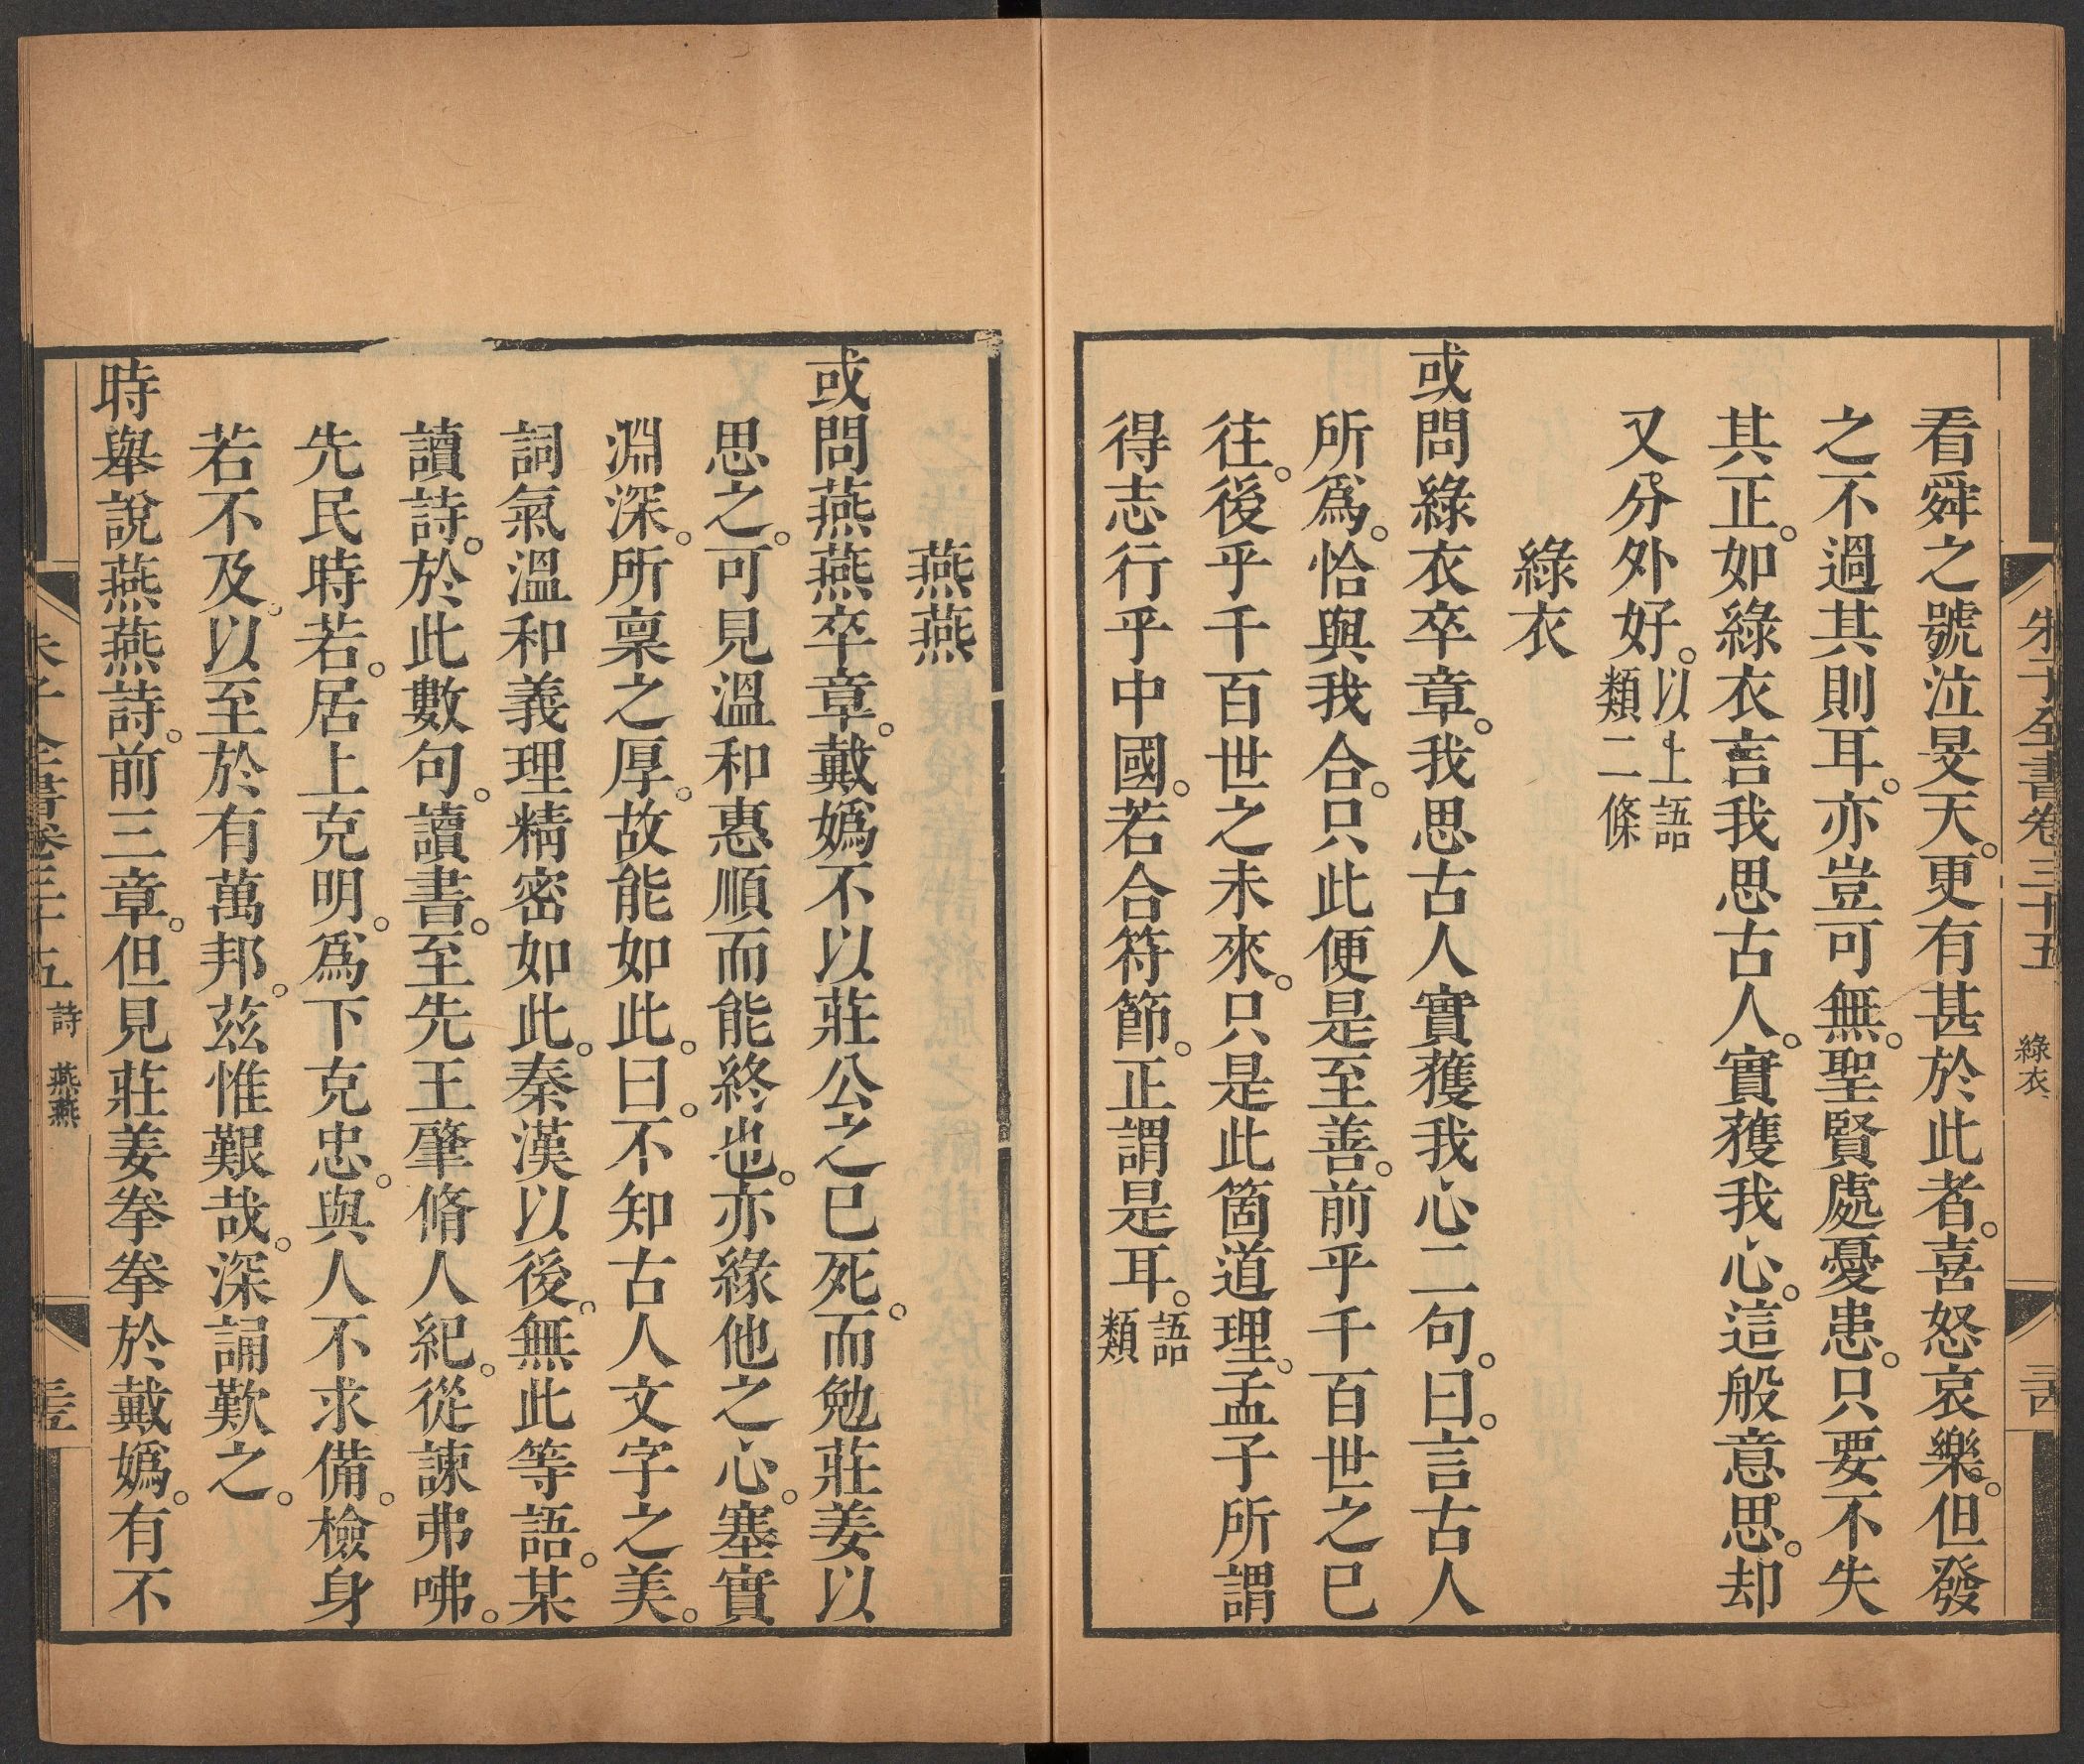 朱子全書卷三十五 綠衣 三十四
看舜之號泣旻天。更有甚於此者。喜怒哀樂。但發
之不過其則耳。亦豈可無。聖賢處憂患。只要不失
其正。如綠衣言我思古人。實獲我心。這般意思。却
又分外好。以上語類二條
綠衣
或問綠衣卒章。我思古人實獲我心二句。曰。言古人
所爲。恰與我合。只此便是至善。前乎千百世之已
往。後乎千百世之未來。只是此箇道理。孟子所謂
得志行乎中國。若合符節。正謂是耳。語類
燕燕
或問燕燕卒章。戴嬀不以莊公之已死。而勉莊姜以
思之。可見溫和惠順而能終也。亦緣他之心。塞實
淵深。所稟之厚。故能如此。曰。不知古人文字之美。
詞氣溫和義理精密如此。秦漢以後。無此等語。某
讀詩。於此數句。讀書。至先王肇脩人紀。從諫弗咈。
先民時若。居上克明。爲下克忠。與人不求備。檢身
若不及。以至於有萬邦。茲惟艱哉。深誦歎之。
時舉說燕燕詩。前三章。但見莊姜拳拳於戴嬀。有不
朱子全書卷三十五 詩 燕燕 三十五